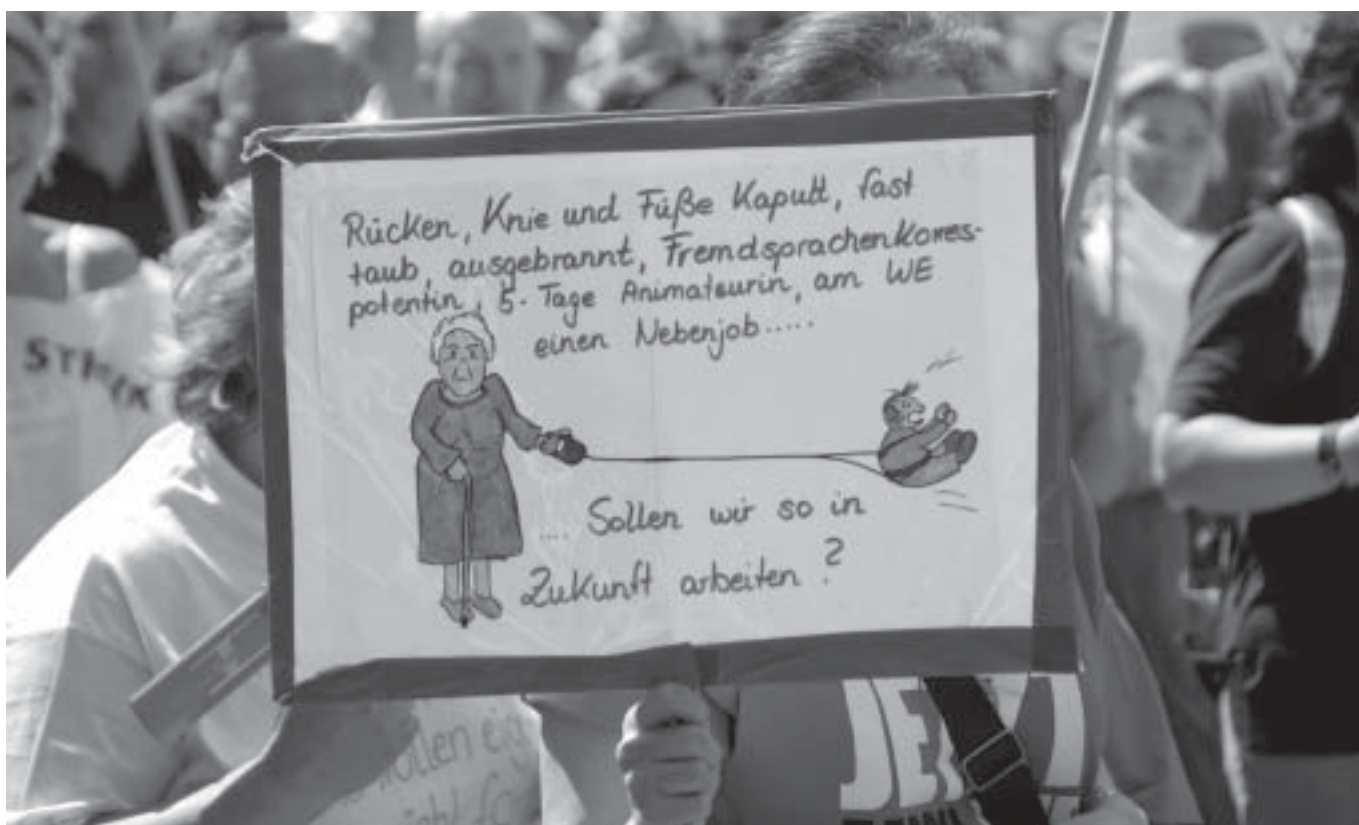 Rücken, Knie und Füße Kaputt, fast
taub, ausgebrannt, Fremdsprachenkorres-
potentin, 5-Tage Animateurin, am WE
einen Nebenjob.....
.... Sollen wir so in
Zukunft arbeiten ?